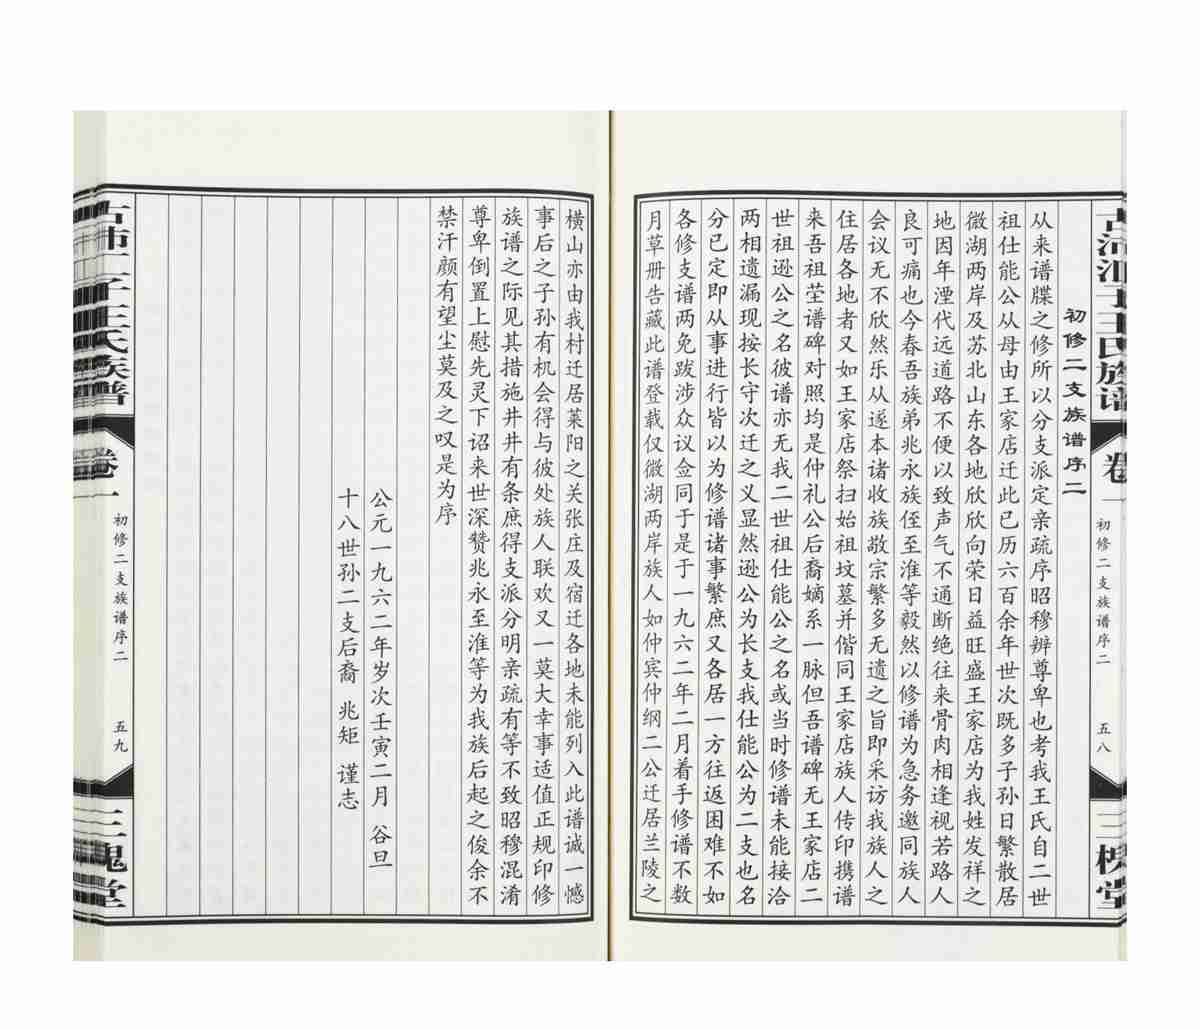 初修二支族谱序二
从来谱牒之修所以分支派定亲疏序昭穆辨尊卑也考我王氏自二世
祖仕能公从母由王家店迁此已历六百余年世次既多子孙日繁散居
微湖两岸及苏北山东各地欣欣向荣日益旺盛王家店为我姓发祥之
地因年湮代远道路不便以致声气不通断绝往来骨肉相逢视若路人
良可痛也今春吾族弟兆永族侄至淮等毅然以修谱为急务邀同族人
会议无不欣然乐从遂本诸收族敬宗繁多无遗之旨即采访我族人之
住居各地者又如王家店祭扫始祖坟墓并偕同王家店族人传印携谱
来吾祖茔谱碑对照均是仲礼公后裔嫡系一脉但吾谱碑无王家店二
世祖逊公之名彼谱亦无我二世祖仕能公之名或当时修谱未能接洽
两相遗漏现按长守次迁之义显然逊公为长支我仕能公为二支也名
分已定即从事进行皆以为修谱诸事繁庶又各居一方往返困难不如
各修支谱两免跋涉众议佥同于是于一九六二年二月着手修谱不数
月草册告藏此谱登载仅微湖两岸族人如仲宾仲纲二公迁居兰陵之
初修二支族谱序二
五八
横山亦由我村迁居莱阳之关张庄及宿迁各地未能列入此谱诚一憾
事后之子孙有机会得与彼处族人联欢又一莫大幸事适值正规印修
族谱之际见其措施井井有条庶得支派分明亲疏有等不致昭穆混淆
尊卑倒置上慰先灵下诏来世深赞兆永至淮等为我族后起之俊余不
禁汗颜有望尘莫及之叹是为序
公元一九六二年岁次壬寅二月 谷旦
十八世孙二支后裔 兆矩 谨志
卷一
初修二支族谱序二
五九
三槐堂